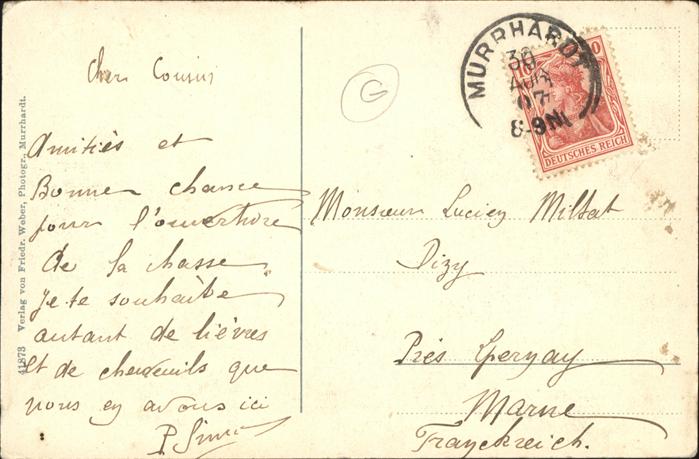 Cher Cousin
Amitiés et
Bonne chance
pour l'ouverture
de la chasse
Je te souhaite
autant de lièvres
et de chevreuils que
nous en avons ici
P.
G
MURRHARDT
30
AUG
07
8-9N
10
DEUTSCHES REICH
Monsieur Lucien Miltat
Dizy
Près Epernay
Marne
Franckreich.
41873 Verlag von Friedr. Weber, Photogr., Murrhardt.